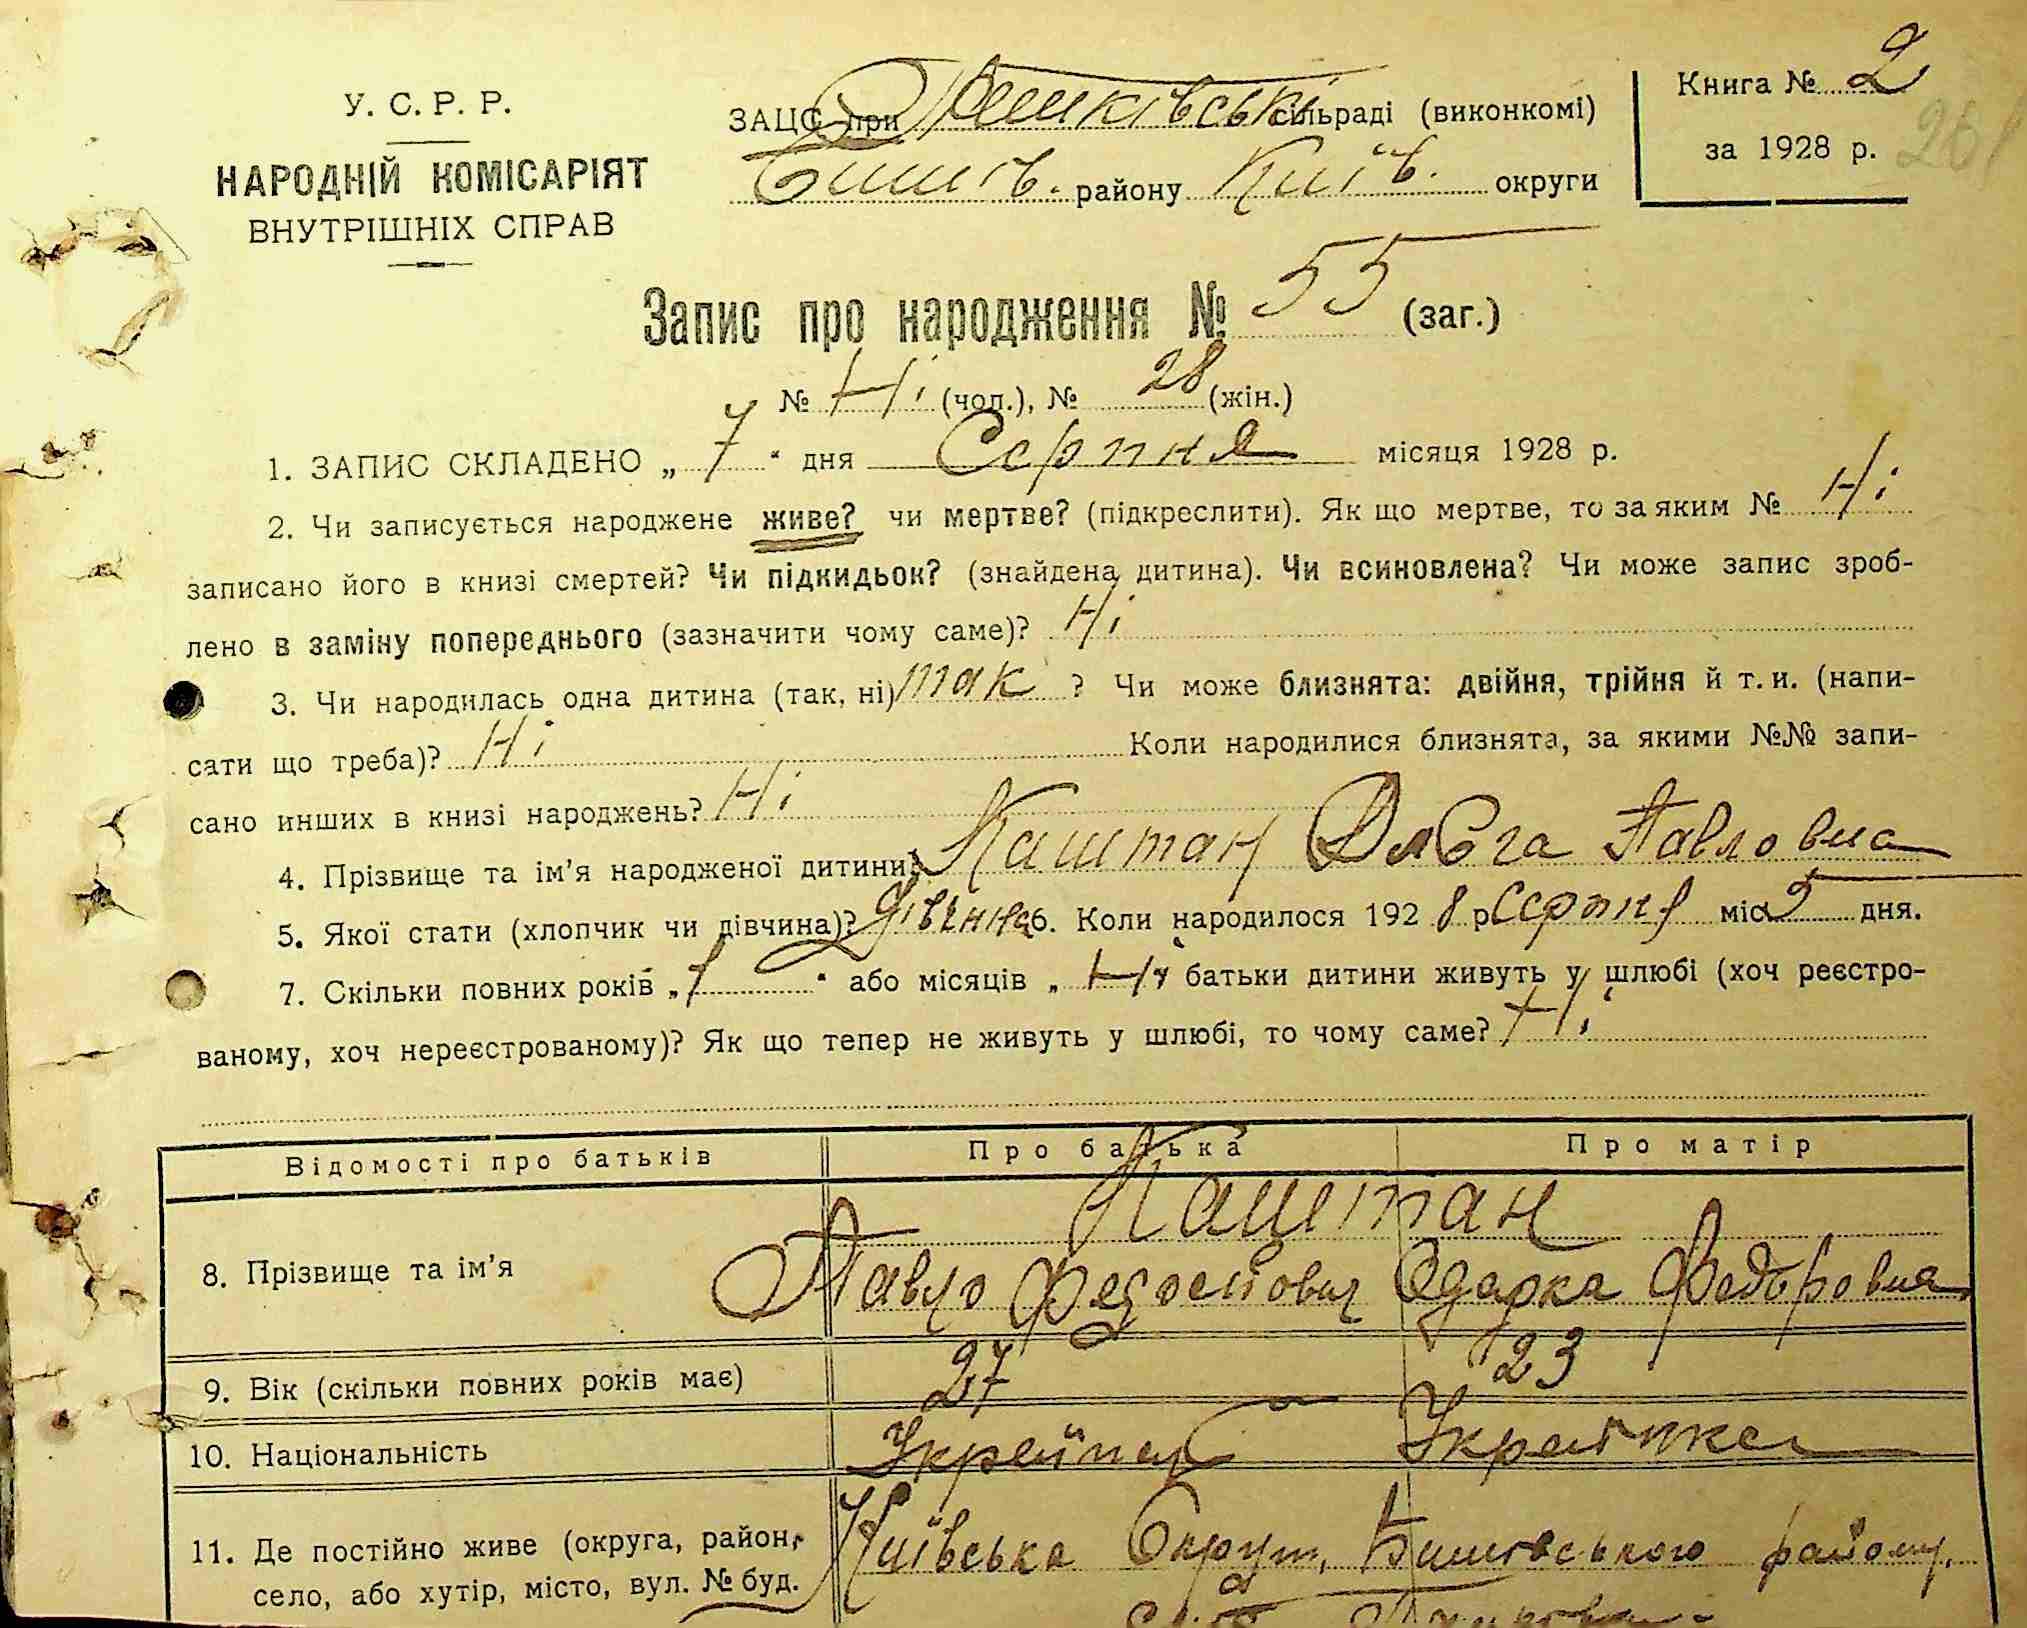 У. С. Р. Р.
НАРОДНІЙ КОМІСАРІЯТ
ВНУТРІШНІХ СПРАВ
ЗАЦС при сільраді (виконкомі)
Бишів. району Київ. округи
Книга № 2
за 1928 р.
Запис про народження № 55 (заг.)
№ Ні (чол.), № 28 (жін.)
1. ЗАПИС СКЛАДЕНО „ 7 “ дня Серпня місяця 1928 р.
2. Чи записується народжене живе? чи мертве? (підкреслити). Як що мертве, то за яким № Ні
записано його в книзі смертей? Чи підкидьок? (знайдена дитина). Чи всиновлена? Чи може запис зроб-
лено в заміну попереднього (зазначити чому саме)? Ні
3. Чи народилась одна дитина (так, ні) так ? Чи може близнята: двійня, трійня й т. и. (напи-
сати що треба)? Ні Коли народилися близнята, за якими №№ запи-
сано инших в книзі народжень? Ні
4. Прізвище та ім’я народженої дитини: Каштан Ольга Павловна
5. Якої стати (хлопчик чи дівчина)? Дівчина 6. Коли народилося 192 8 р. Серпня міс. 5 дня.
7. Скільки повних років „ 1 “ або місяців „ Ні батьки дитини живуть у шлюбі (хоч реєстро-
ваному, хоч нереєстрованому)? Як що тепер не живуть у шлюбі, то чому саме? Ні
Відомості про батьків Про батька Про матір
Каштан
8. Прізвище та ім’я Павло Федосійович Одарка Федоровна
9. Вік (скільки повних років має) 27 23
10. Національність Українець Українка
11. Де постійно живе (округа, район, Київська Округа, Бишівського району,
село, або хутір, місто, вул. № буд. село